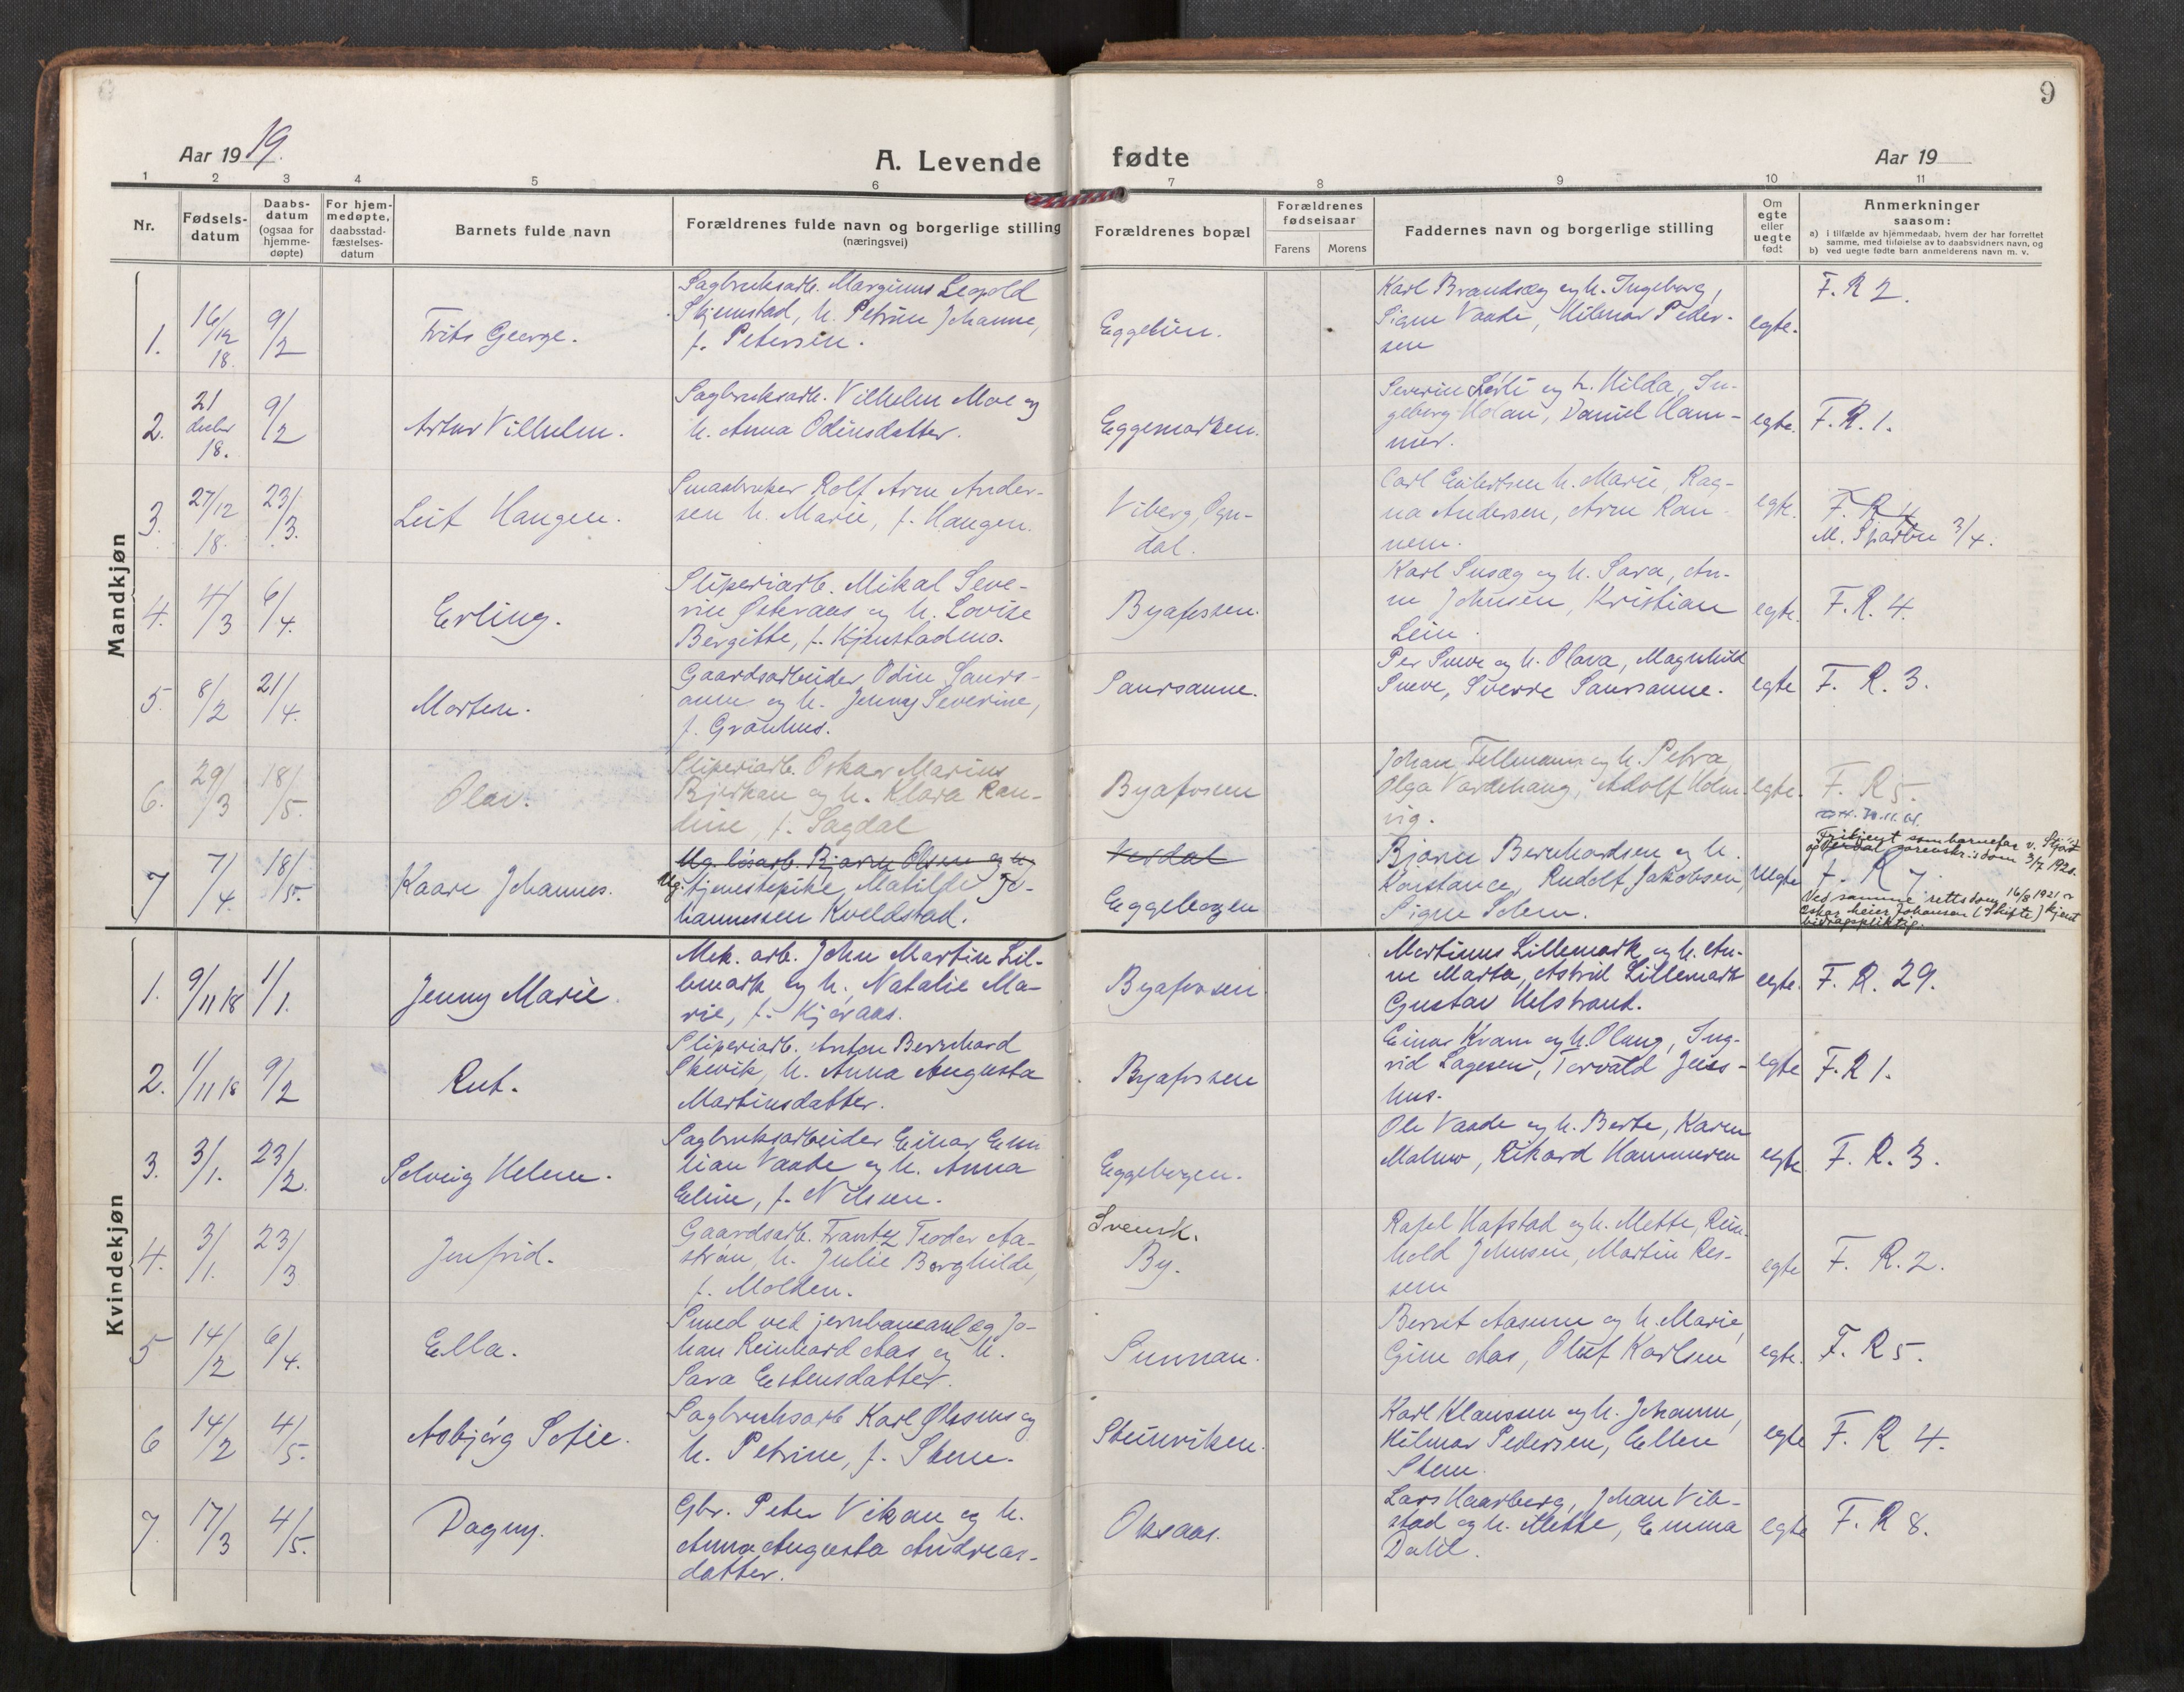 9
Aar 19 19.
A. Levende
fødte
Aar 19
1 2 3 4 5 6 7 8 9 10 11
Nr.
Fødsels-
datum
Daabs-
datum
(ogsaa for
hjemme-
døpte)
For hjem-
medøpte,
daabsstad-
fæstelses-
datum
Barnets fulde navn
Forældrenes fulde navn og borgerlige stilling
(næringsvei)
Forældrenes bopæl
Forældrenes
fødselsaar
Farens Morens
Faddernes navn og borgerlige stilling
Om
egte
eller
uegte
født
Anmerkninger
saasom:
a) i tilfælde av hjemmedaab, hvem der har forrettet
samme, med tilføielse av to daabsvidners navn, og
b) ved uegte fødte barn anmelderens navn m. v.
Mandkjøn
1.
16/12
18.
9/2
Frits George.
Sagbruksarb. Marginus Leopold
Skjemstad, h. Petrine Johanne,
f. Petersen.
Eggelien.
Karl Brandsæg og h. Ingeborg,
Signe Vaade, Hilmar Peder-
sen
egte.
F. R 2.
2.
21
desbr
18.
9/2
Artur Vilhelm.
Sagbruksarb. Vilhelm Moe og
h. Anna Odinsdatter.
Eggemarken.
Severin og h. Hilda, In-
geborg Holan, Daniel Ham-
mer.
egte.
F. R. 1.
3.
27/12
18.
23/3.
Leif Haugen.
Smaabruker Rolf Arne Ander-
sen h. Marie, f. Haugen.
Viberg, Ogn-
dal.
Carl h. Marie, Rag-
na Andersen, Arne Ran-
nem.
egte.
F. R 4
M. Sparbu 3/4.
4.
4/3
6/4.
Erling.
Sliperiarb. Mikal Seve-
rin Østeraas og h. Lovise
Bergitte, f. Kjenstadmo.
Byafossen.
Karl Susæg og h. Sara, An-
ne Johnsen, Kristian
Lein.
egte.
F. R. 4.
5.
8/2
21/4.
Morten.
Gaardsarbeider Odin Saurs-
aune og h. Jenny Severine,
f. Granhus.
Saursaune.
Per Sneve og h. Olava, Magnhild
Sneve, Sverre Saursaune.
egte
F. R. 3.
6.
29/3
18/5.
Olav.
Sliperiarb. Oskar Marius
Bjerkan og h. Klara Ran-
dine, f. Sagdal
Byafossen
Johan Tellmann og h. Petra,
Olga Vardehaug, Adolf Holm-
vig.
egte.
F. R 5.
7
7/4.
18/5.
Kaare Johannes.
Ug. løsarb. Bjarne Olsen og u
Ug. tjenestepike, Matilde Jo-
hannessen Kveldstad.
Verdal
Eggebogen
Bjarne Bernhardsen og h.
Konstance, Rudolf Jakobsen,
Signe Solem.
Uegte
Frikjent som barnefar v. Stjør-
og Verdal sorenskr.s dom 3/7 1920.
F. R 7.
Ved samme retts dom 16/8 1921 er
Oskar Meier Johansen (Skifte) kjent
bidragspliktig.
Kvindekjøn
1.
9/11 18
1/1.
Jenny Marie.
Mek. arb. John Martin Lil-
lemark og h. Natalie Ma-
rie, f. Kjeraas.
Byafossen
Martinus Lillemark og h. An-
ne Marta, Astrid Lillemark
Gustav Helstrand.
egte.
F. R. 29.
2.
1/11 18
9/2
Rut.
Sliperiarb. Anton Bernhard
Skevik, h. Anna Augusta
Martinsdatter.
Byafossen
Einar Kvam og h. Olaug, Ing-
rid Lagesen, Torvald Jens-
hus.
egte
F. R 1.
3.
3/1.
23/2.
Solveig Helene.
Sagbruksarbeider Einar Emi
lian Vaade og h. Anna
Eline, f. Nilsen.
Eggebogen.
Ole Vaade og h. Berte, Karen
Malmo, Rikard Hammeren
egte
F. R. 3.
4.
3/1.
23/3
Jenfrid.
Gaardsarb. Frantz Teodor Aa-
strøm, h. Julie Borghilde,
f. Molden.
Svensk.
By.
Rafel Hafstad og h. Mette, Rein-
hold Johnsen, Martin Res-
sem
egte
F. R. 2.
5
14/2
6/4.
Ella.
Smed ved jernbaneanlæg Jo-
han Reinhard Aas og h.
Sara Estensdatter.
Sunnan.
Bernt Aasum og h. Marie,
Gine Aas, Oluf Karlsen
egte.
F. R 5.
6
14/2
4/5.
Asbjørg Sofie.
Sagbruksarb Karl Olssens og
h. Petrine, f. Stene.
Steinviken.
Karl Klaussen og h. Johanne,
Hilmar Pedersen, Ellen
Stene.
egte
F. R 4.
7.
17/3
4/5.
Dagny.
Gbr. Peter Vikan og h.
Anna Augusta Andreas-
datter.
Oksaas.
Lars Haarberg, Johan Vik-
stad og h. Mette, Emma
Dahl.
egte
F. R 8.